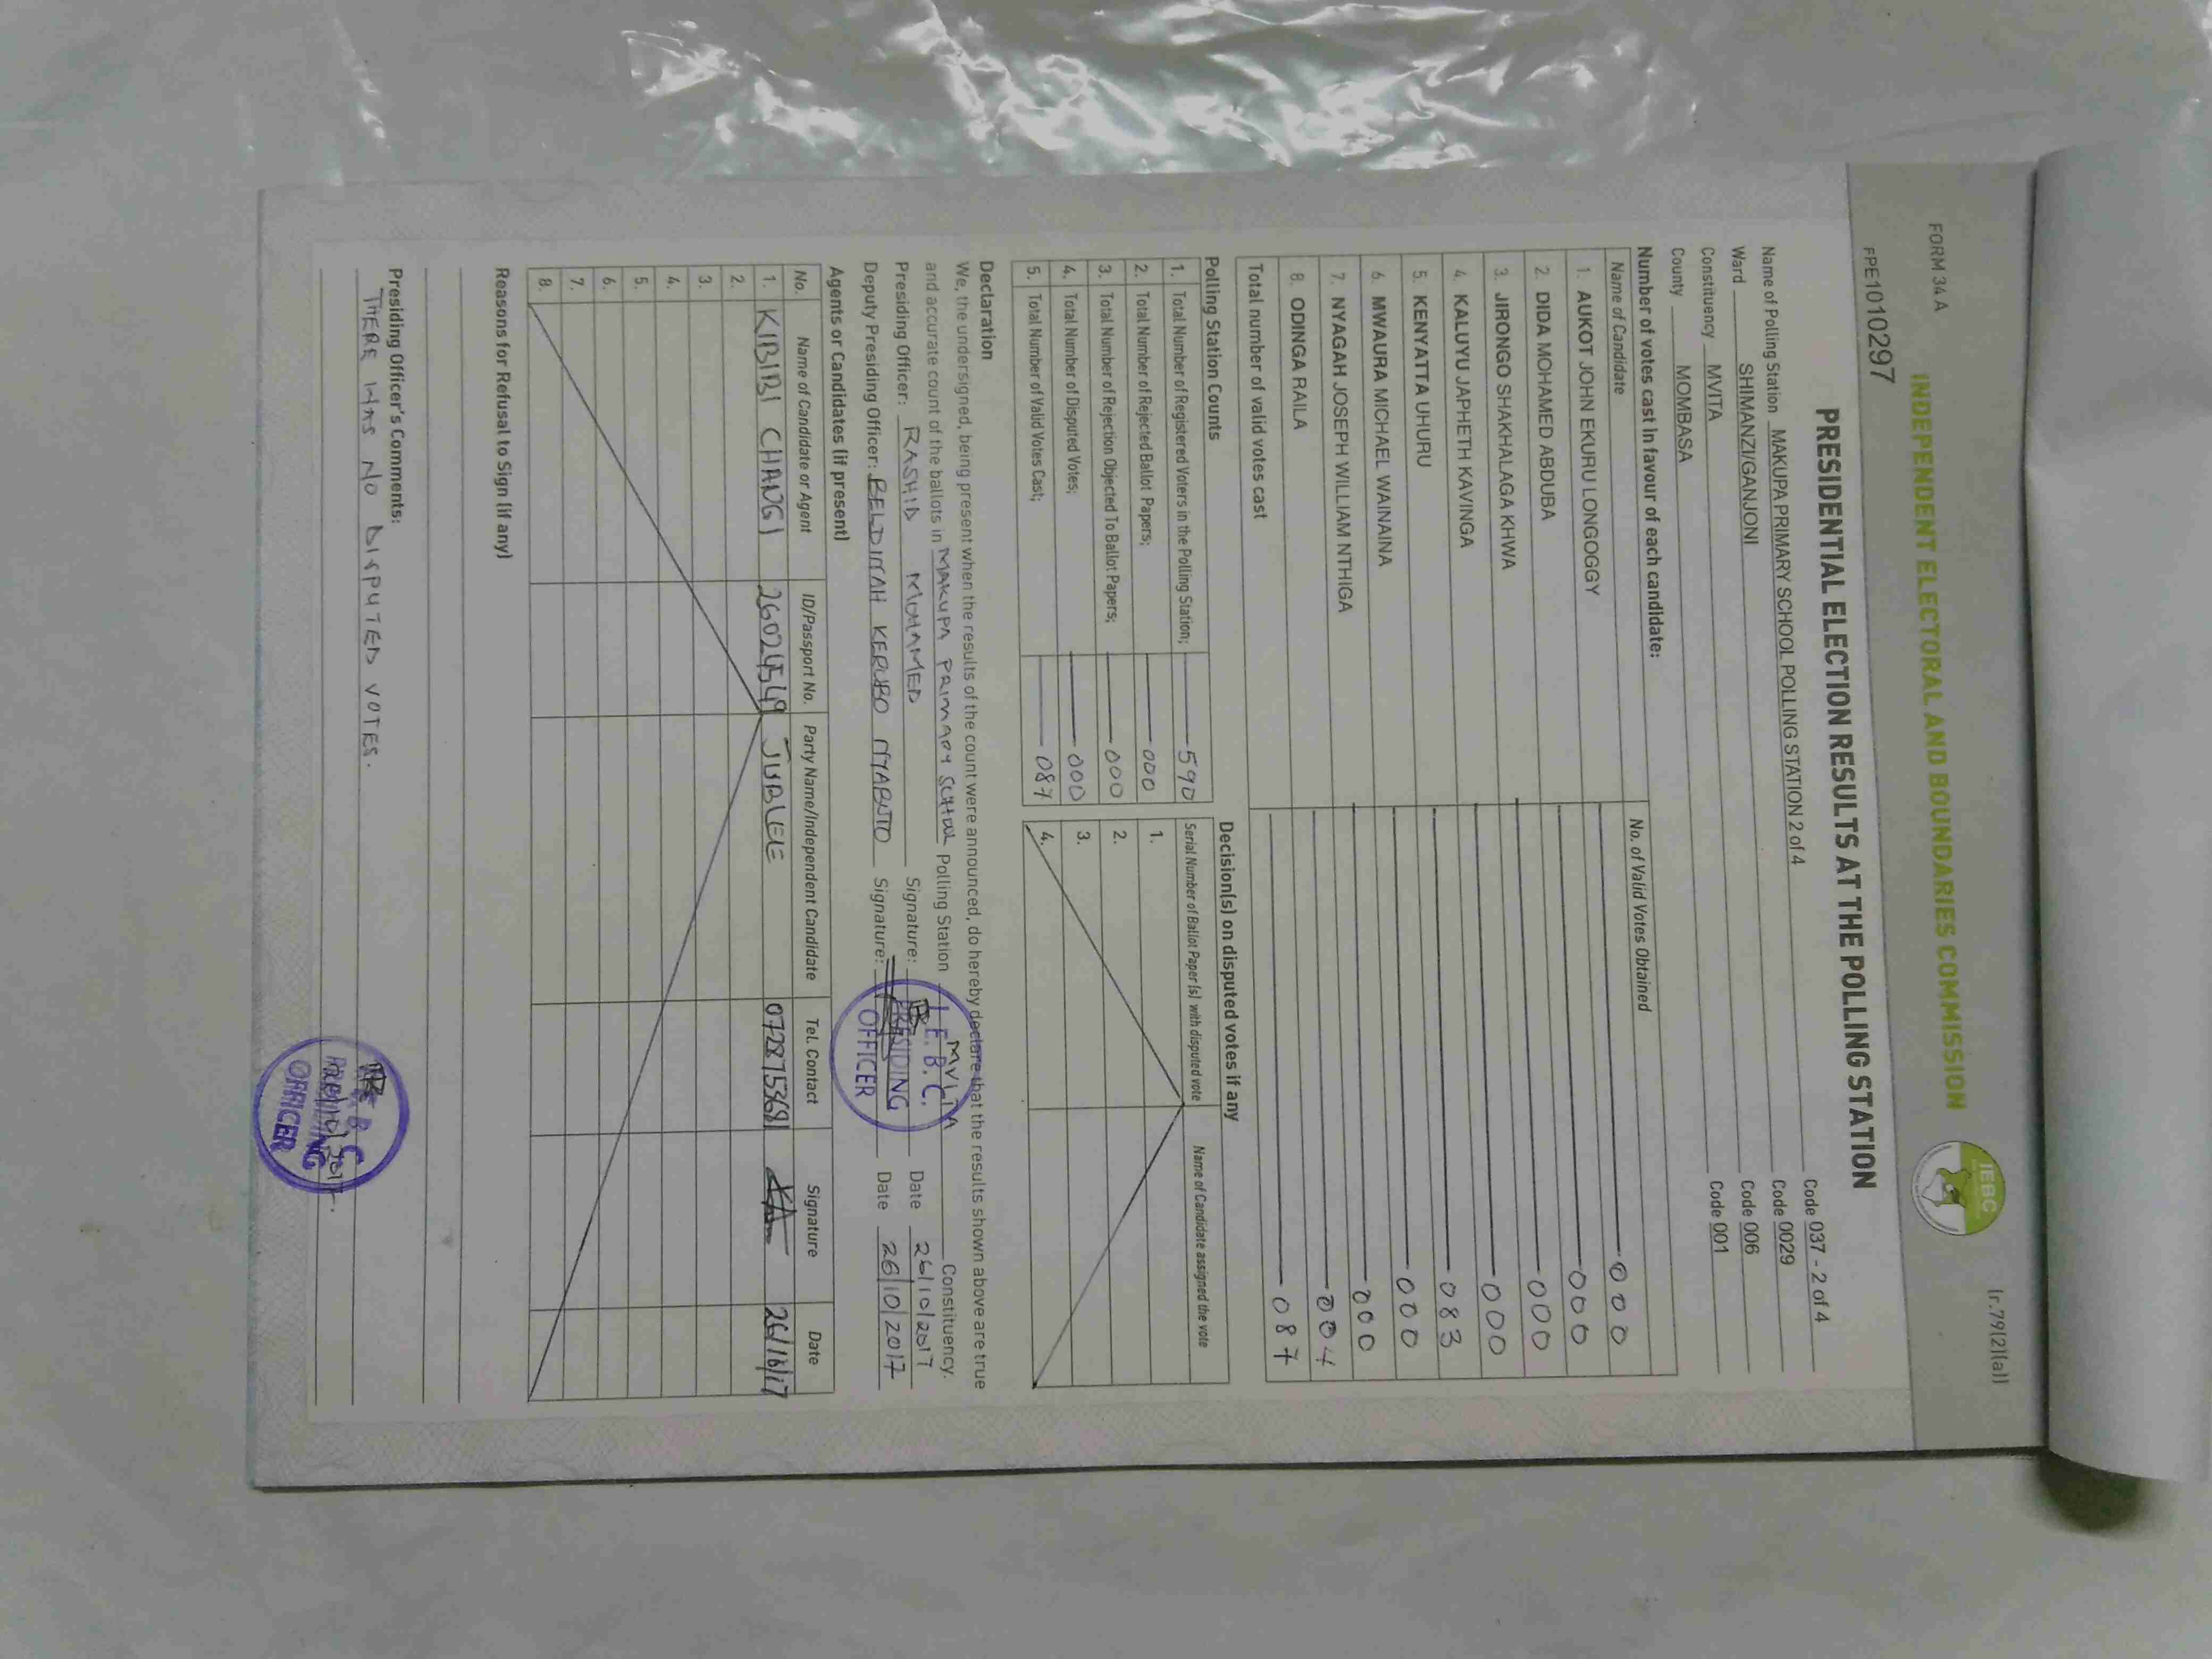 FORM 34 A
(r.79(2)(a))
INDEPENDENT ELECTORAL AND BOUNDARIES COMMISSION
IEBC
FPE1010297
PRESIDENTIAL ELECTION RESULTS AT THE POLLING STATION
Name of Polling Station MAKUPA PRIMARY SCHOOL POLLING STATION 2 of 4 Code 037 - 2 of 4
Ward SHIMANZI/GANJONI Code 0029
Constituency MVITA Code 006
County MOMBASA Code 001
Number of votes cast in favour of each candidate:
Name of Candidate No. of Valid Votes Obtained
1. AUKOT JOHN EKURU LONGOGGY 000
2. DIDA MOHAMED ABDUBA 000
3. JIRONGO SHAKHALAGA KHWA 000
4. KALUYU JAPHETH KAVINGA 000
5. KENYATTA UHURU 083
6. MWAURA MICHAEL WAINAINA 000
7. NYAGAH JOSEPH WILLIAM NTHIGA 000
8. ODINGA RAILA 004
Total number of valid votes cast 087
Polling Station Counts
1. Total Number of Registered Voters in the Polling Station; 590
2. Total Number of Rejected Ballot Papers; 000
3. Total Number of Rejection Objected To Ballot Papers; 000
4. Total Number of Disputed Votes; 000
5. Total Number of Valid Votes Cast; 087
Decision(s) on disputed votes if any
Serial Number of Ballot Paper (s) with disputed vote Name of Candidate assigned the vote
1.
2.
3.
4.
Declaration
We, the undersigned, being present when the results of the count were announced, do hereby declare that the results shown above are true
and accurate count of the ballots in MAKUPA PRIMARY SCHOOL Polling Station MVITA Constituency.
Presiding Officer: RASHID MOHAMED Signature: Date 26/10/2017
Deputy Presiding Officer: BELDINAH KERUBO NYABUTO Signature: Date 26/10/2017
I.E.B.C.
PRESIDING
OFFICER
Agents or Candidates (if present)
No. Name of Candidate or Agent ID/Passport No. Party Name/Independent Candidate Tel. Contact Signature Date
1. KIBIBI CHANGI 26024549 JUBLEE 0728753681 26/10/17
2.
3.
4.
5.
6.
7.
8.
Reasons for Refusal to Sign (if any)
Presiding Officer's Comments:
THERE WAS NO DISPUTED VOTES.
PRESIDING
OFFICER